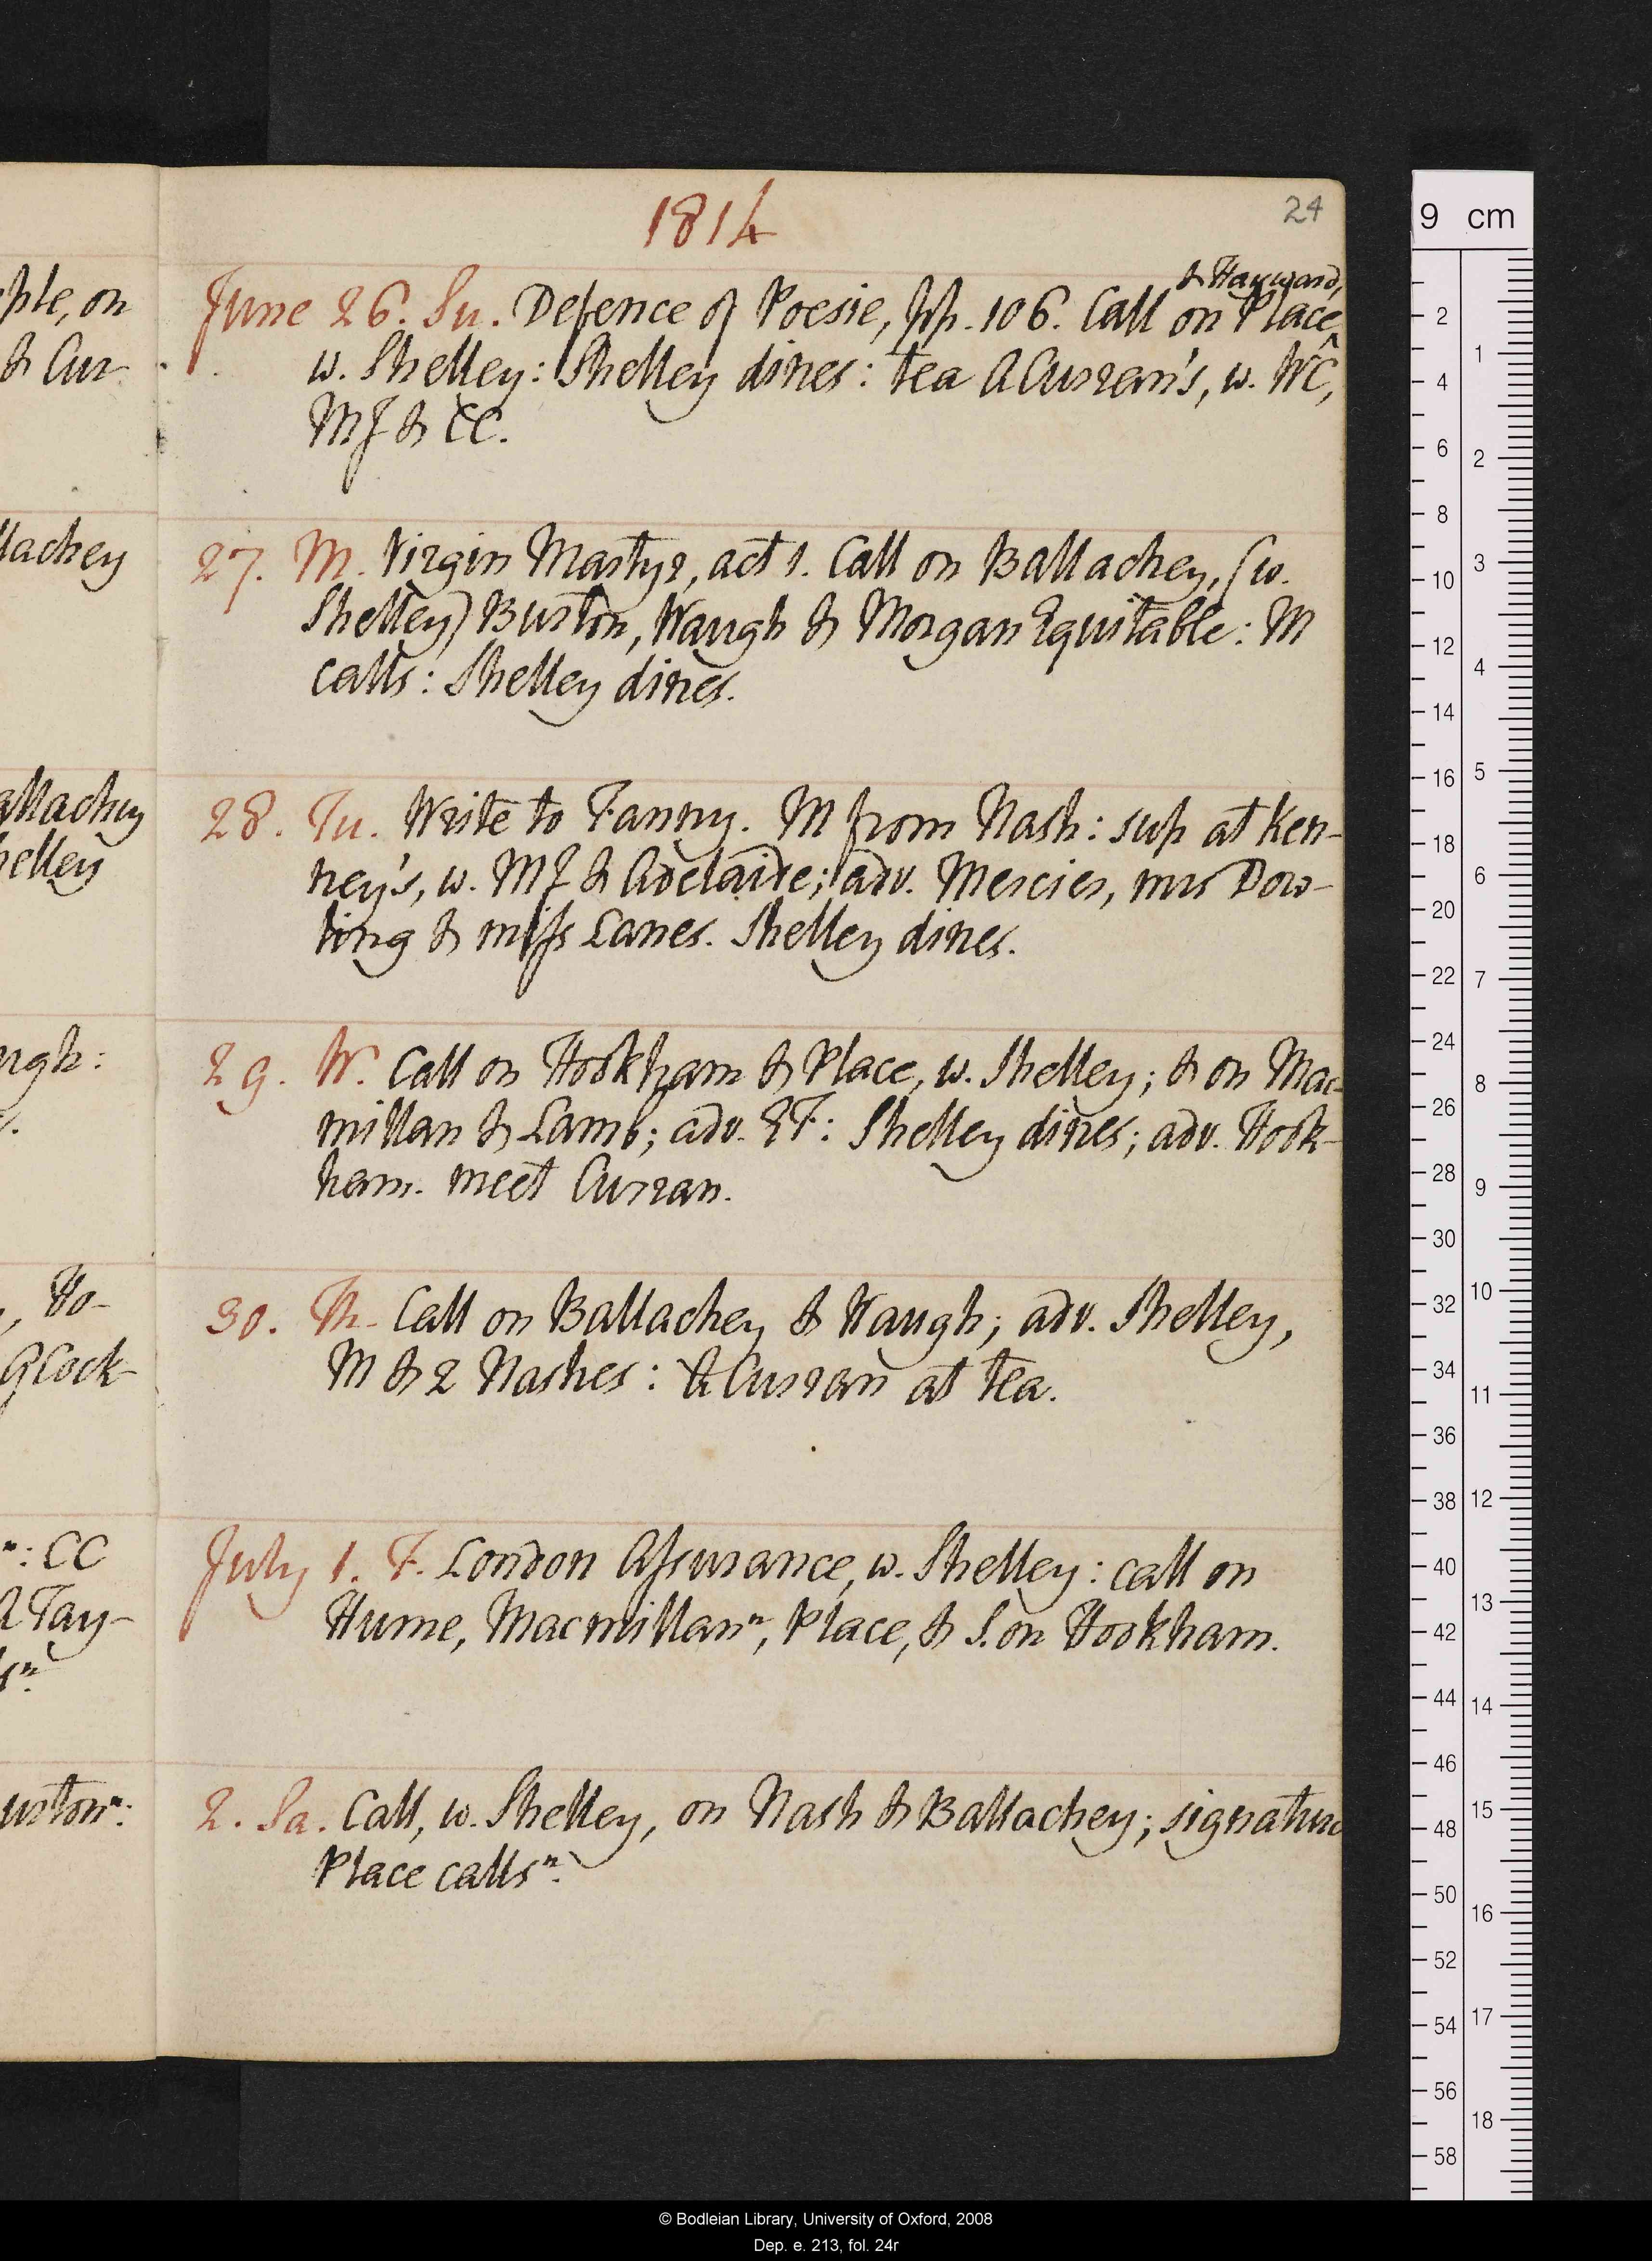 1814
24
& Hayward,
June 26. Su. Defence of Poesie, pp. 106. Call on Place^
w. Shelley: Shelley dines: tea ACurran's, w. WC,
MJ & CC.
27. M. Virgin Martyr, act 1. Call on Ballachey, (w.
Shelley) Burton, Waugh & Morgan Equitable: M
calls: Shelley dines.
28. Tu. Write to Fanny. M from Nash: sup at Ken-
ney's, w. MJ & Adelaide; adv. Mercier, mrs Dow-
ling & miss Lanes. Shelley dines.
29. W. Call on Hookham & Place, w. Shelley; & on Mac-
millan & Lamb; adv. EF: Shelley dines; adv. Hook-
ham. meet Curran.
30. Th. Call on Ballachey & Waugh; adv. Shelley,
M & 2 Nashes: A Curran at tea.
July 1. F. London Assurance, w. Shelley: call on
Hume, Macmillan n, Place, & S. on Hookham.
2. Sa. Call, w. Shelley, on Nash & Ballachey; signature
Place calls n.
ple, on
& Cur-
llachey
allachey
helley
ugh:
, Ho-
GCock-
n: CC
A Tay-
urton n:
9 cm
2
4
6
8
10
12
14
16
18
20
22
24
26
28
30
32
34
36
38
40
42
44
46
48
50
52
54
56
58
1
2
3
4
5
6
7
8
9
10
11
12
13
14
15
16
17
18
© Bodleian Library, University of Oxford, 2008
Dep. e. 213, fol. 24r